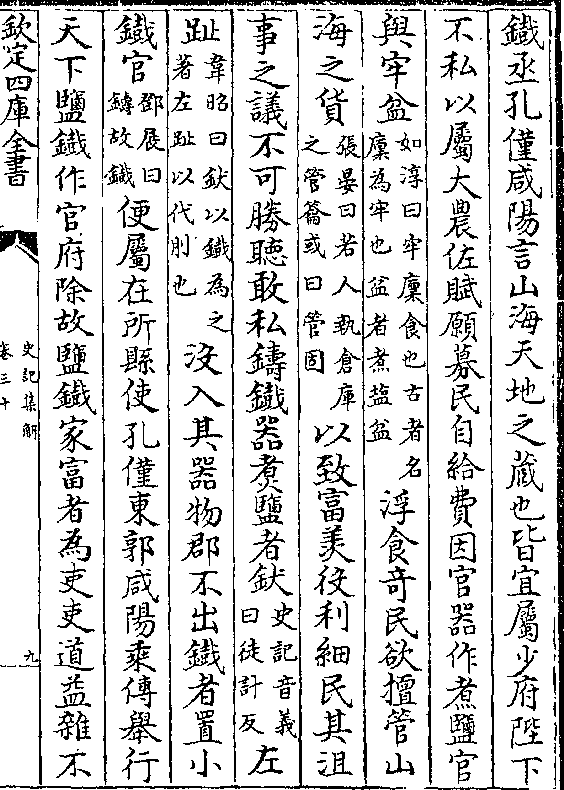 鐡丞孔僅咸陽言山海天地之藏也皆宜屬少府陛下
不私以屬大農佐賦願募民自給費因官器作煮鹽官
與牢盆如淳曰牢廩食也古者名廩為牢也盆者煮鹽盆浮食竒民欲擅管山
海之貨張晏曰若人執倉庫之管籥或曰管固以致富羡役利細民其沮
事之議不可勝聽敢私鑄鐡器煑鹽者釱史記音義曰徒計反左
趾韋昭曰釱以鐡為之著左趾以代刖也没入其器物郡不出鐡者置小
鐡官鄧展曰鑄故鐡便屬在所縣使孔僅東郭咸陽乗傳舉行
天下鹽鐡作官府除故鹽鐡家富者為吏吏道益雜不
欽定四庫全書
史記集解
卷三十
九